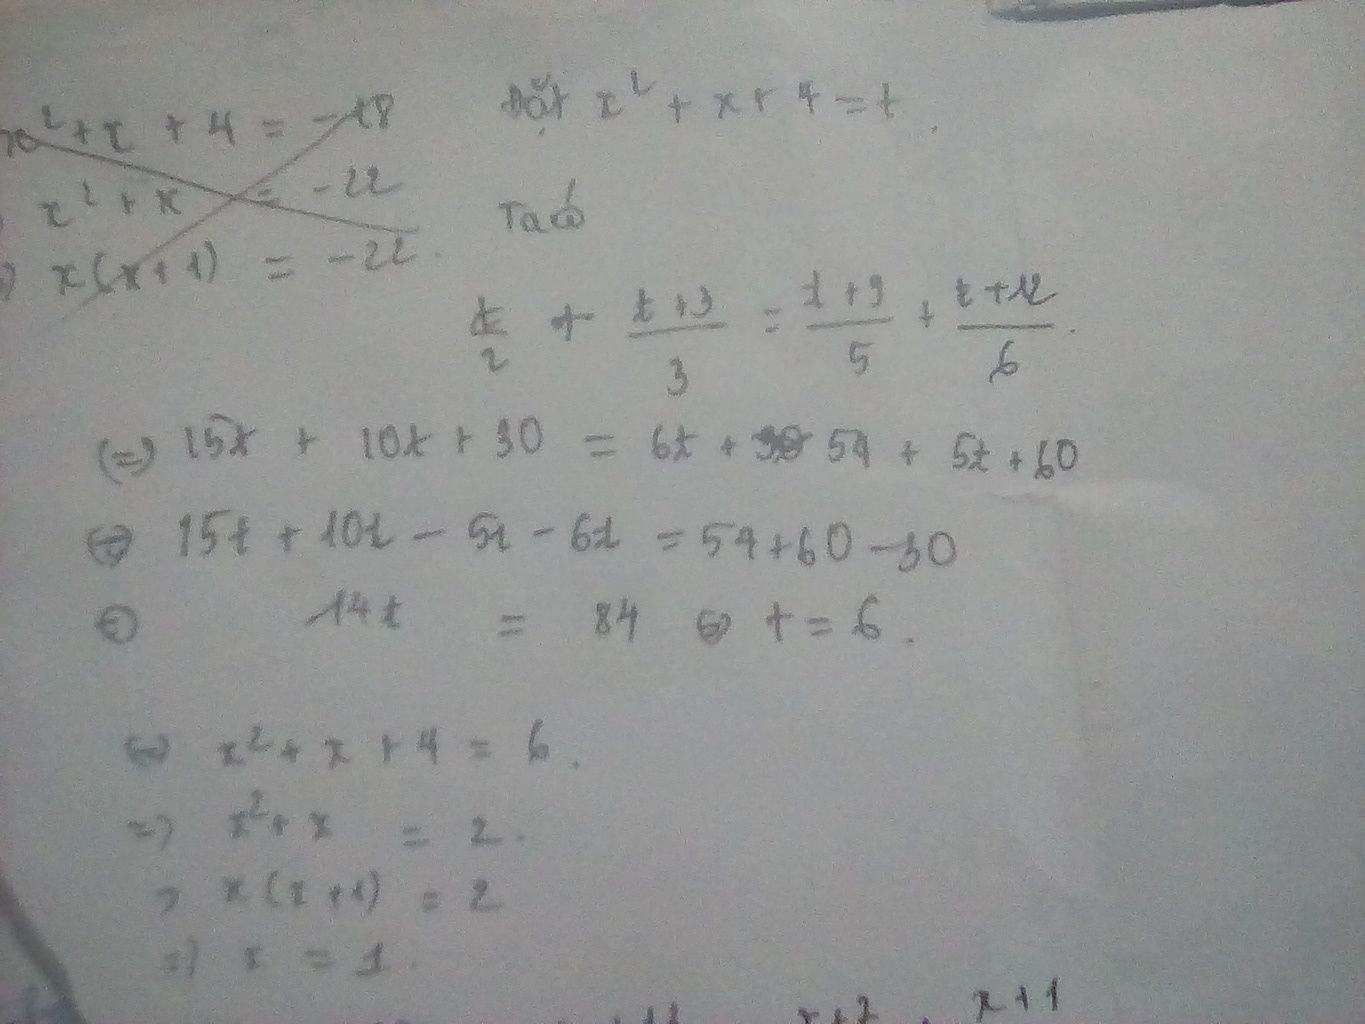 x² + x + 4 = -18
x² + x = -22
x(x+1) = -22.
Đặt x² + x + 4 = t.
Ta có
t/2 + (t+3)/3 = (t+9)/5 + (t+12)/6.
(=) 15t + 10t + 30 = 6t + 54 + 5t + 60
⇔ 15t + 10t - 5t - 6t = 54 + 60 - 30
⇔ 14t = 84 ⇔ t = 6.
⇔ x² + x + 4 = 6.
=> x² + x = 2.
> x(x+1) = 2
=> x = 1.
x+1